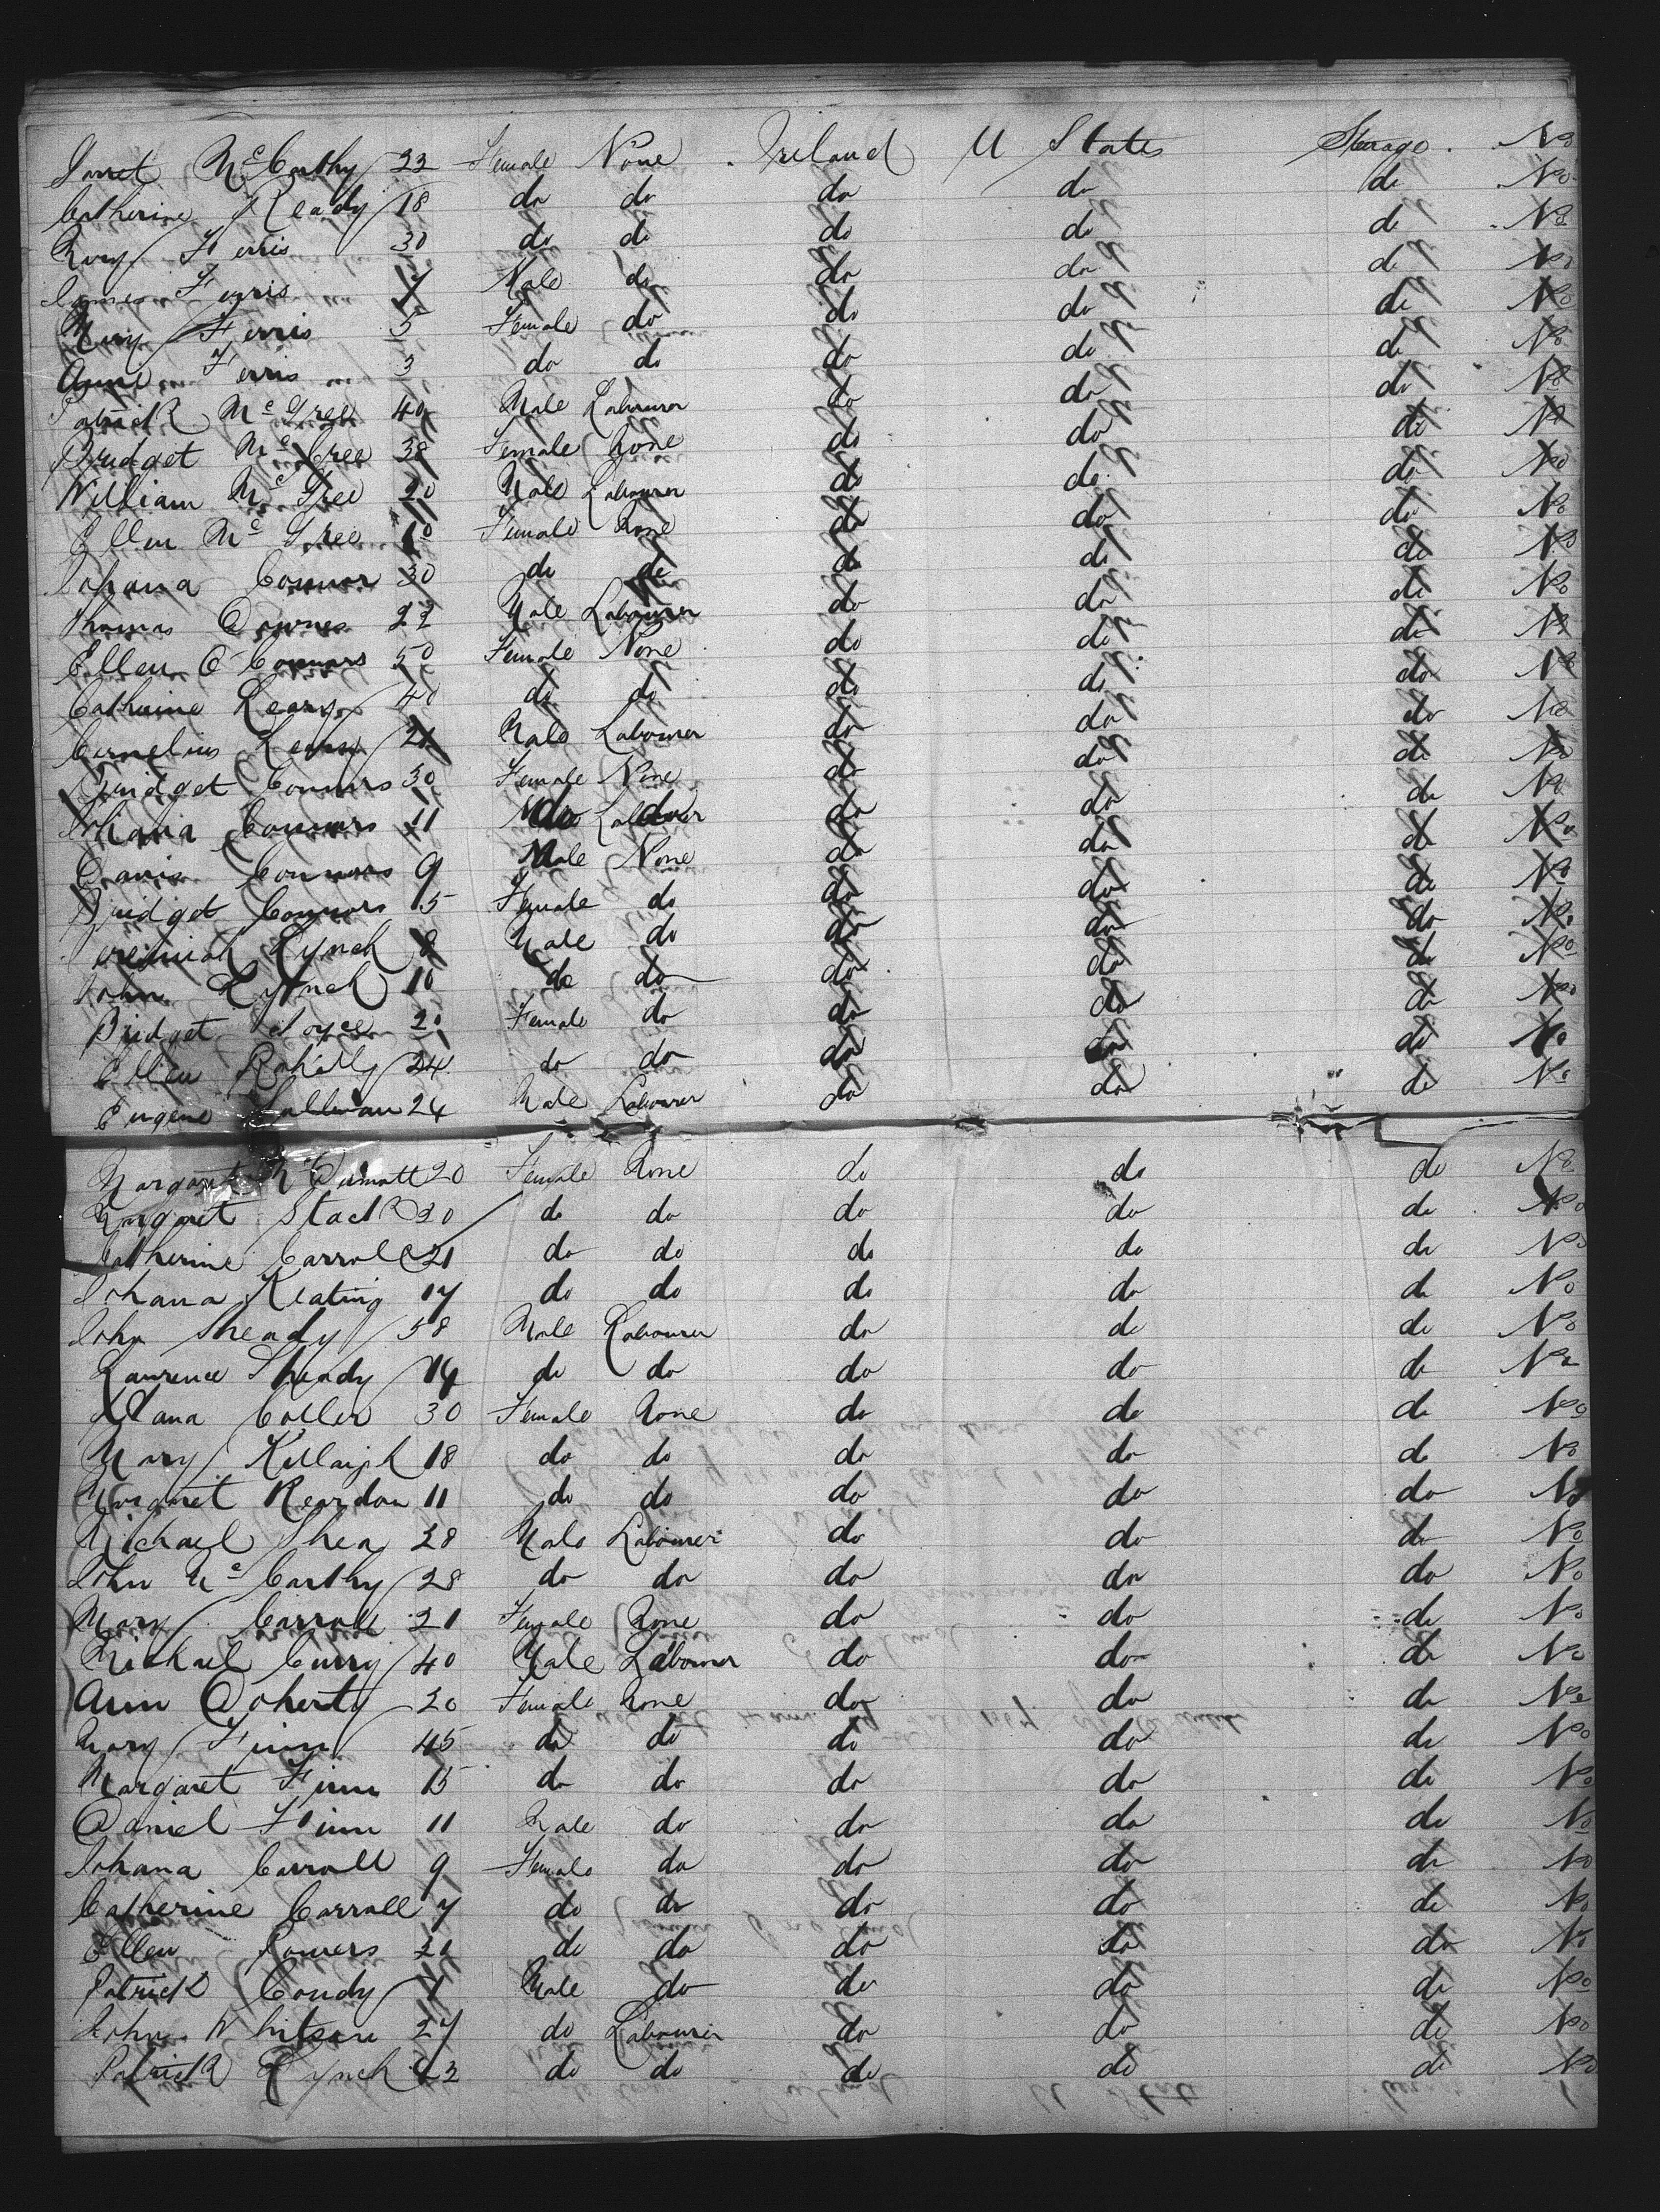 McCarthy 22 Female None Ireland U States Steerage No
Catherine Ready 18 do do do do do No
Mary Ferris 30 do do do do do No
James Ferris 7 Male do do do do No
Mary Ferris 5 Female do do do do No
Anne Ferris 3 do do do do do No
Patrick 40 Male Labourer do do do No
Bridget 38 Female None do do do No
William 20 Male Labourer do do do No
Ellen 10 Female None do do do No
Johana Connor 30 do do do do do No
Thomas Downes 22 Male Labourer do do do No
Ellen O Connors 50 Female None do do do No
Catherine Leary 40 do do do do do No
Cornelius Leary Male Labourer do do do No
Bridget Connors 30 Female None do do do No
Johana Connors 11 do do do do No
Connors 9 Male None do do do No
Bridget Connors Female do do do do No
Jeremiah Lynch Male do do do do No
John Lynch 10 do do do do do No
Bridget Joyce Female do do do do No
Ellen Rahilly 24 do do do do do No
Eugene Sullivan 24 Male Labourer do do do No
Margaret 20 Female None do do do No
Margaret Stack do do do do do No
Catherine Carroll 21 do do do do do No
Johana Keating 17 do do do do do No
John Sheady 58 Male Labourer do do do No
Laurence Sheady 14 do do do do do No
Coller 30 Female None do do do No
Mary 18 do do do do do No
Margaret Reardon 11 do do do do do No
Michael Shea 28 Male Labourer do do do No
John Mc Carthy 28 do do do do do No
Mary Carroll 21 Female None do do do No
Michael Curry 40 Male Labourer do do do No
Ann Doherty 20 Female None do do do No
Mary Finn 45 do do do do do No
Margaret Finn 15 do do do do do No
Daniel Finn 11 Male do do do do No
Johana Carroll 9 Female do do do do No
Catherine Carroll 7 do do do do do No
Ellen Powers do do do do do No
Patrick Condy Male do do do do No
John 27 do Labourer do do do No
Patrick Lynch do do do do do No